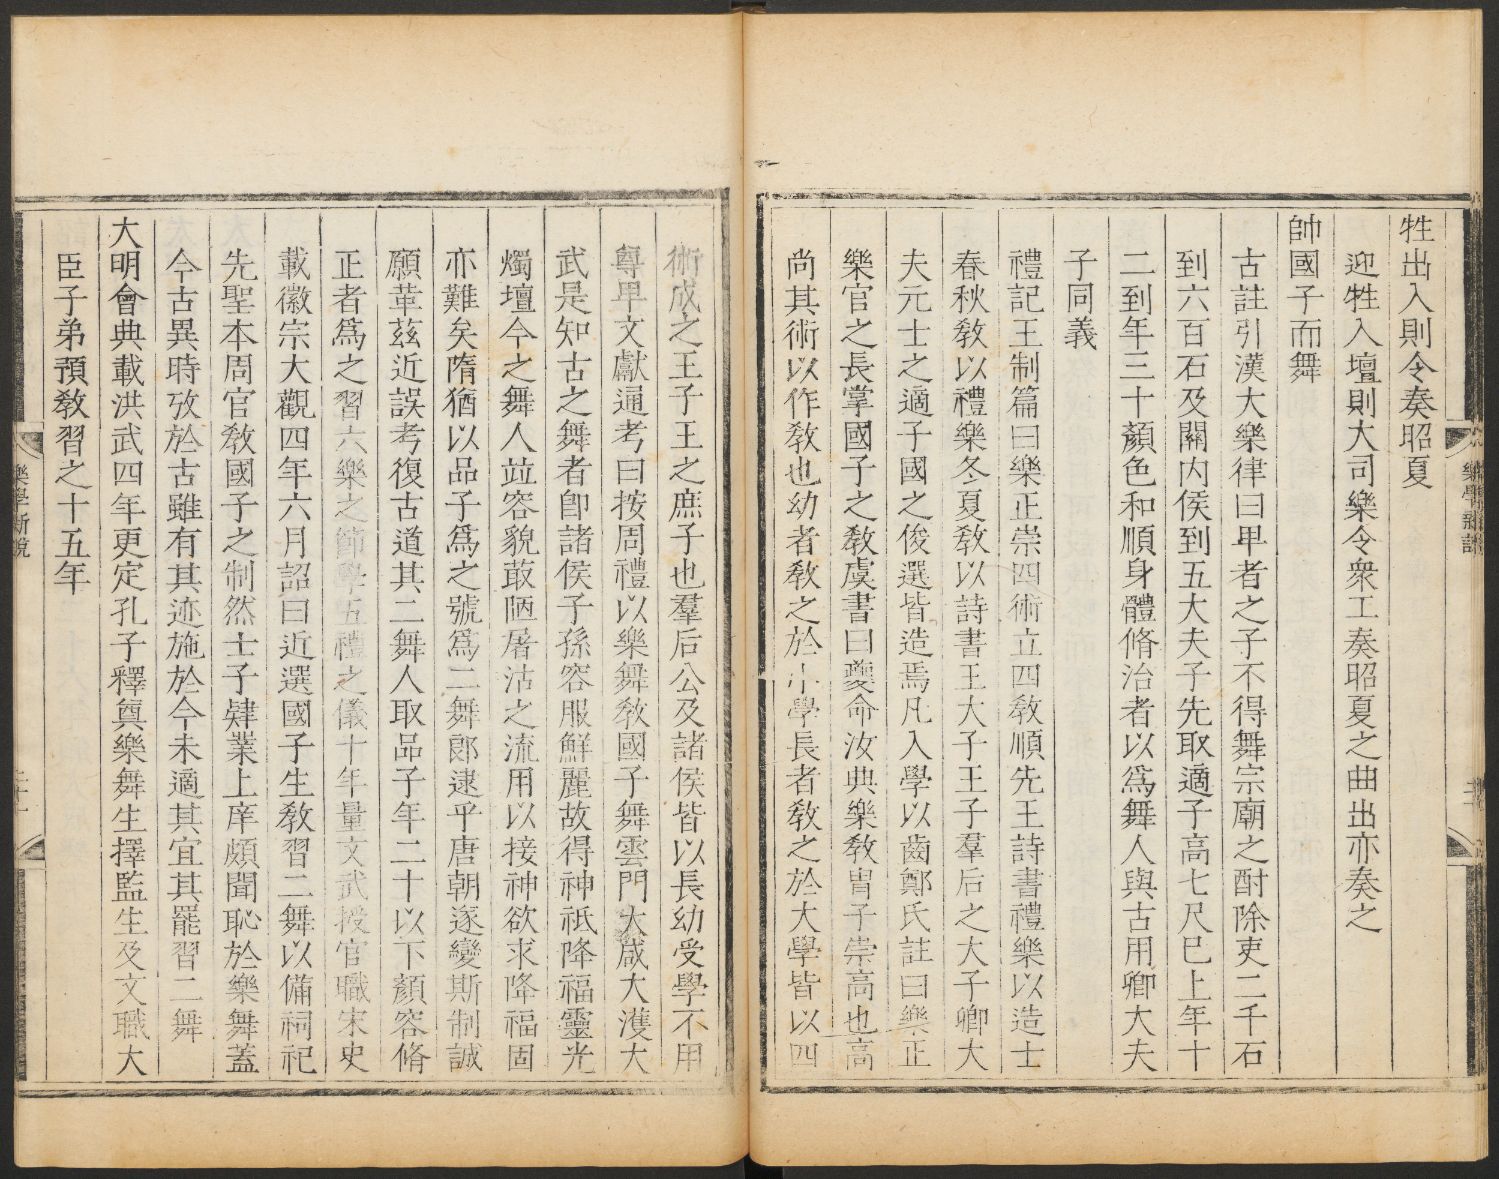 牲出入則令奏昭夏
迎牲入壇則大司樂令衆工奏昭夏之曲出亦奏之
帥國子而舞
古註引漢大樂律曰卑者之子不得舞宗廟之酎除吏二千石
到六百石及關内侯到五大夫子先取適子高七尺已上年十
二到年三十顏色和順身體脩治者以爲舞人與古用卿大夫
子同義
禮記王制篇曰樂正崇四術立四敎順先王詩書禮樂以造士
春秋敎以禮樂冬夏敎以詩書王大子王子羣后之大子卿大
夫元士之適子國之俊選皆造焉凡入學以齒鄭氏註曰樂正
樂官之長掌國子之敎虞書曰夔命汝典樂敎胄子崇高也高
尚其術以作敎也幼者敎之於小學長者敎之於大學皆以四
術成之王子王之庶子也羣后公及諸侯皆以長幼受學不用
尊卑文獻通考曰按周禮以樂舞敎國子舞雲門大咸大濩大
武是知古之舞者卽諸侯子孫容服鮮麗故得神祇降福靈光
燭壇今之舞人竝容貌蕞陋屠沽之流用以接神欲求降福固
亦難矣隋猶以品子爲之號爲二舞郎逮乎唐朝逐變斯制誠
願革茲近誤考復古道其二舞人取品子年二十以下顏容脩
正者爲之習六樂之節學五禮之儀十年量文武授官職宋史
載徽宗大觀四年六月詔曰近選國子生敎習二舞以備祠祀
先聖本周官敎國子之制然士子肄業上庠頗聞恥於樂舞蓋
今古異時攷於古雖有其迹施於今未適其宜其罷習二舞
大明會典載洪武四年更定孔子釋奠樂舞生擇監生及文職大
臣子弟預敎習之十五年
樂學新說